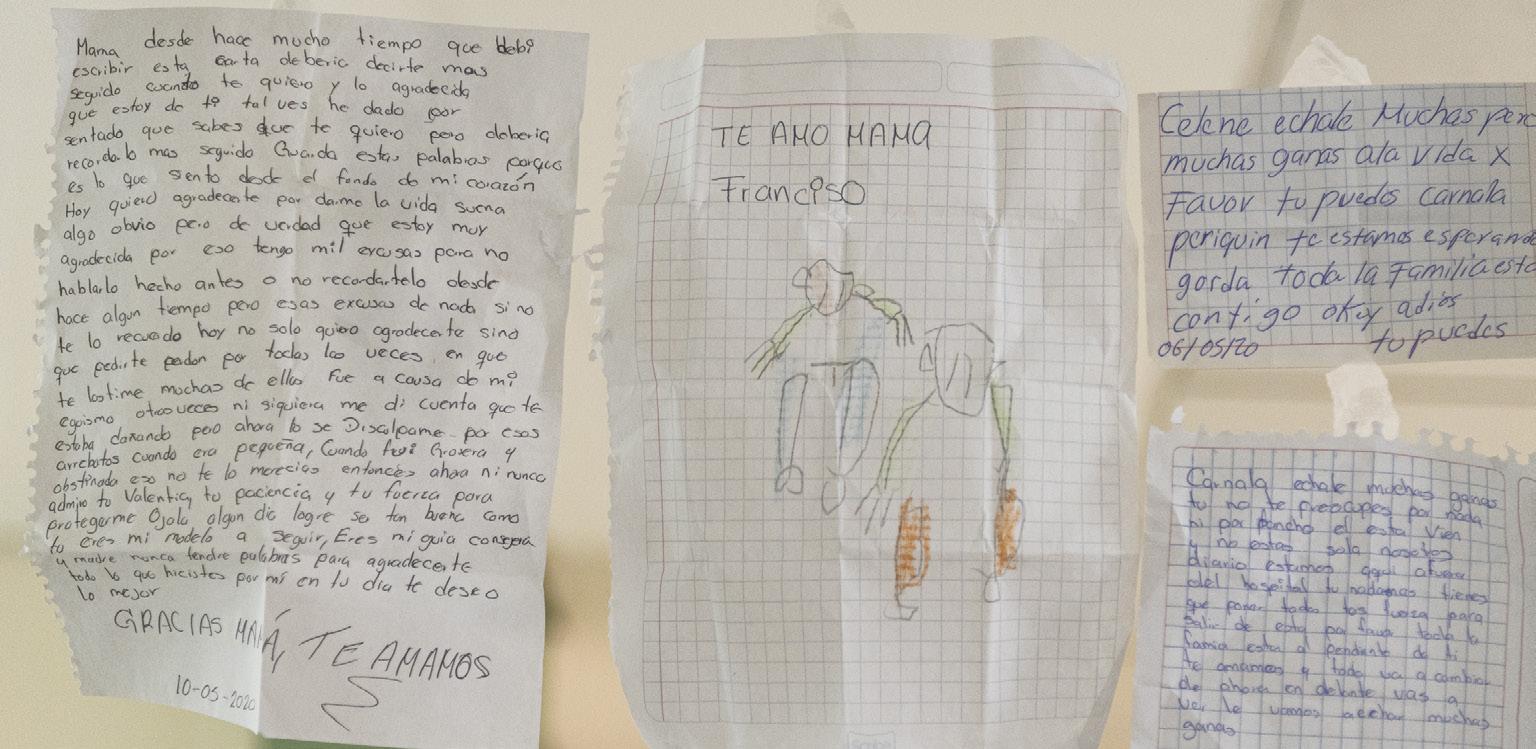 Mama desde hace mucho tiempo que debi
escribir esta carta deberia decirte mas
seguido cuando te quiero y lo agradecida
que estoy de ti tal ves he dado por
sentado que sabes que te quiero pero deberia
recordarlo mas seguido Guarda estas palabras porque
es lo que siento desde el fondo de mi corazón
Hoy quiero agradecerte por darme la vida suena
algo obvio pero de verdad que estoy muy
agradecida por eso tengo mil excusas para no
hablarlo hecho antes o no recordartelo desde
hace algun tiempo pero esas excusas de nada si no
te lo recuedo hoy no solo quiero agradecerte sino
que pedirte perdon por todas las veces en que
te lastime muchas de ellas Fue a causa de mi
egoismo otras veces ni siquiera me di cuenta que te
estaba danando pero ahora lo se Disculpame por esos
arrebatos cuando era pequeña, Cuando fui Grosera y
obstinada eso no te lo merecias entonces ahora ni nunca
admiro tu Valentia, tu paciencia y tu fuerza para
protegerme Ojala algun dia logre ser tan buena como
tu eres mi modelo a seguir, Eres mi guia consejera
y madre nunca tendre palabras para agradecerte
todo lo que hicistes por mí en tu dia te deseo
lo mejor
GRACIAS MAMÁ, TE AMAMOS
10-05-2020
TE AMO MAMA
Franciso
Celene echale Muchas pero
muchas ganas ala vida x
Favor tu puedes carnala
periquin te estamos esperando
gorda toda la Familia esta
contigo okey adios
06/05/20 tu puedes
Carnala echale muchas ganas
tu no te preocupes por nada
ni por poncho el esta Vien
y no estas sola nosotros
diario estamos aqui afuera
del hospital tu nadamas tienes
que poner todas tus fuerza para
salir de esta por favor toda la
famia esta al pendiente de ti
te amamos y todo va a cambiar
de ahora en delante vas a
ver le vamos aechar muchas
ganas